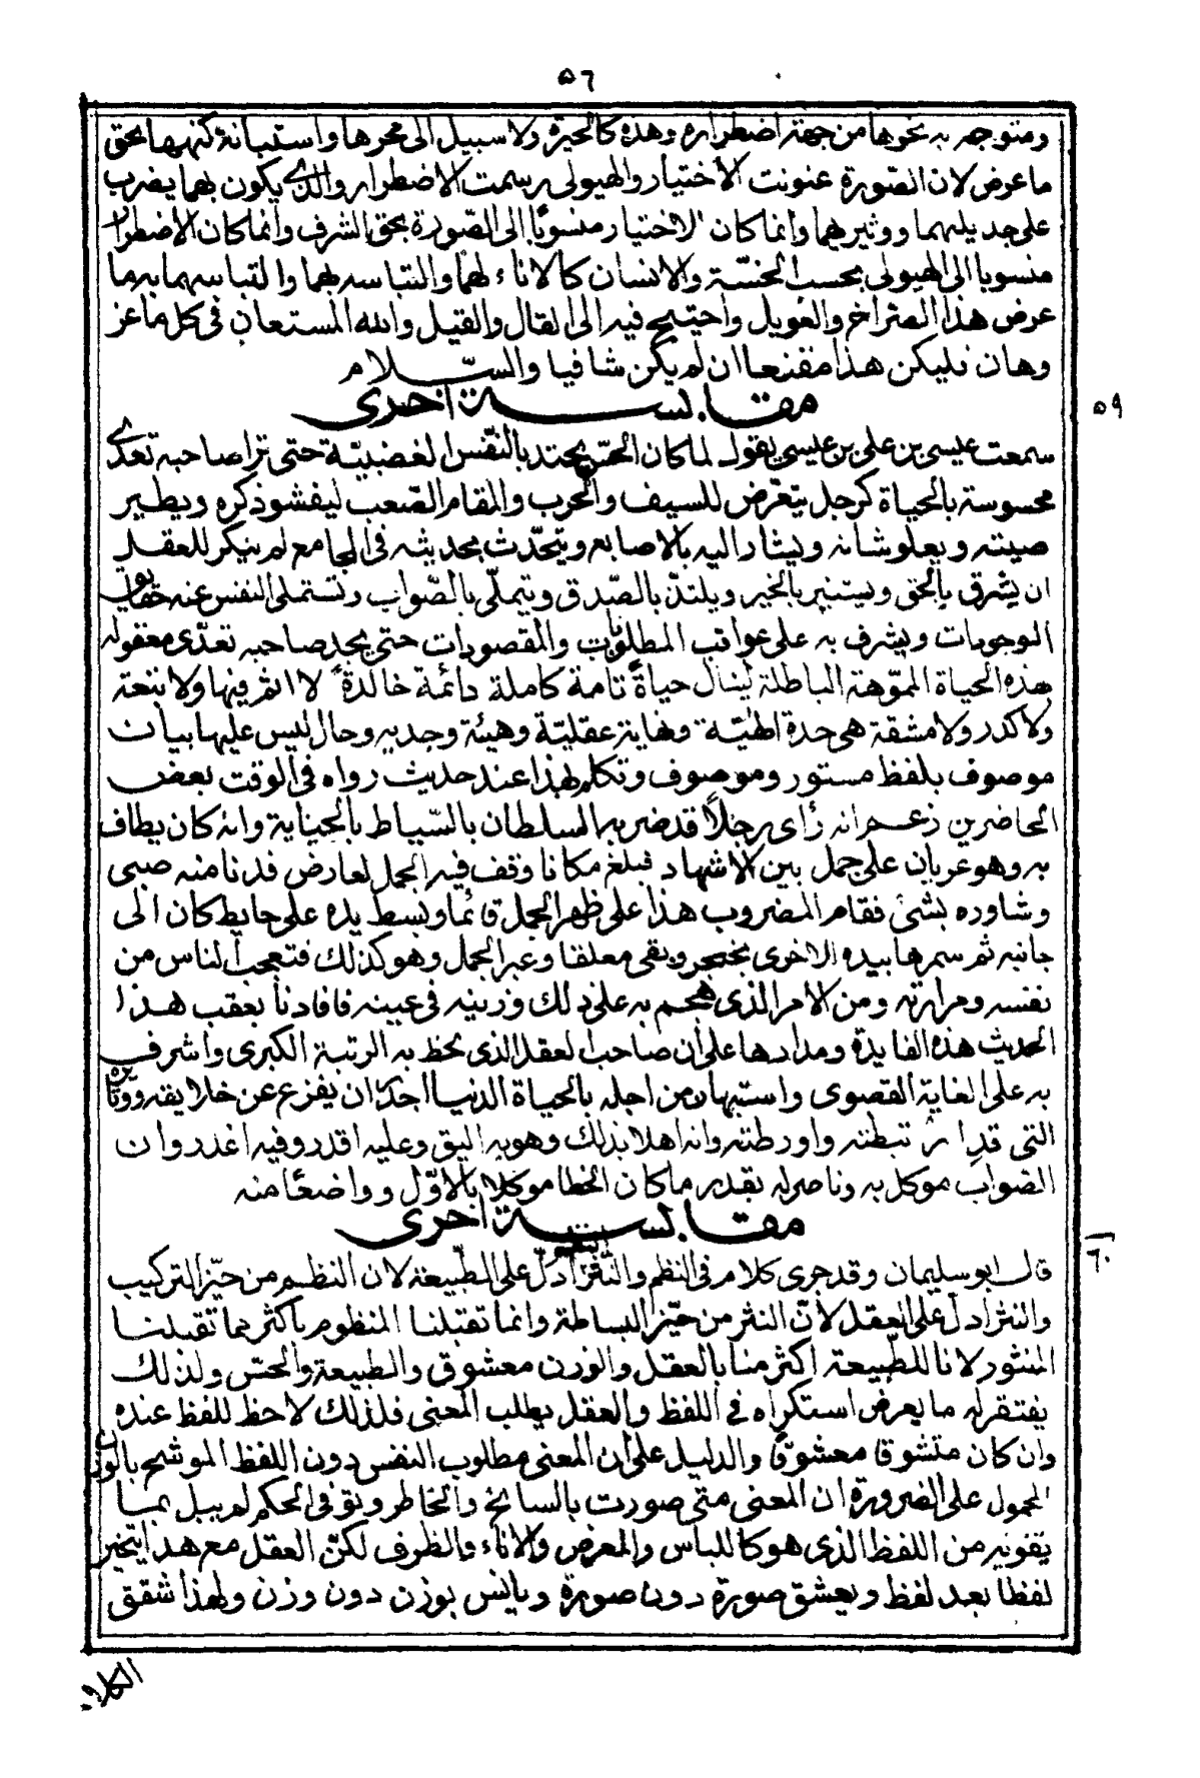 ٥٦
ومتوجه به نحوها من جهة اضطراره وهذه كالحيرة ولا سبيل الى محوها واستبانة كنهها بحق
ما عرض لان الصورة عنونت الاختيار والهيولى رسمت الاضطرار والذي يكون بهما يضرب
على جديلهما ووثيرهما وانما كان الاختيار منسوبًا الى الصّورة بحق الشرف وانما كان الاضطرار
منسوبا الى الهيولى بحسب الخسّة والانسان كالاناء لهما والتباسه بهما والتباسهما به ما
عرض هذا الصراخ والعويل واحتيج فيه الى القال والقيل والله المستعان في كل ما عز
وهان فليكن هذا مقنعا ان لم يكن شافيا والسّلام
مقابسة اخرى
٥٩
سمعت عيسى بن على بن عيسى يقول لما كان الحسّ يجتذ بالنّفس الغضبيّة حتى ترا صاحبه تعدى
محسوسة بالحياة كرجل يتعرّض للسيف والحرب والمقام الصّعب ليفشو ذكره ويطير
صيته ويعلو شانه ويشار اليه بالاصابع ويتحّدث بحديثه في المجامع لم ينكر للعقل
ان يشرق بالحق ويستنير بالخير ويلتذّ بالصّدق ويتملّى بالصّواب وتستملى النفس عنه خفايا
الوجودات ويشرف به على عواقب المطلوبات والمقصودات حتى يجد صاحبه تعدّى معقوله
بهذه الحياة المموّهة الباطلة لينال حياةً تامة كاملة دائمة خالدةً لا اثم فيها ولا تبعة
ولا كدر ولا مشقة هى حدة الهيّة ونهاية عقليّة وهيئة وجديه وحال ليس عليها بيان
موصوف بلفظ مستور وموصوف وتكلم بهذا عند حديث رواه فى الوقت بعض
الحاضرين زعم انه رأى رجلاً قد ضربه السلطان بالسّياط بالجناية وانه كان يطاف
به وهو عريان على جمل بين الاشهاد فبلغ مكانا وقف فيه الجمل لعارض فدنا منه صبى
وشاوره بشئ فقام المضروب هذا على ظهر الجمل قائما وبسط يده على حايط كان الى
جانبه ثم سمرها بيده الاخرى بخنجر وبقى معلقا وعبر الجمل وهو كذلك فتعجب الناس من
نفسه ومرارته ومن الأمر الذى هجم به على ذلك وزينه فى عينه فافادنا بعقب هذا
الحديث هذه الفايدة ومدادها على ان صاحب العقل الذى يحظ به الرتبة الكبرى واشرف
به على الغاية القصوى واستهان من اجله بالحياة الدنيا اجدر ان يفزع عن خلايقه ووتايره
التى قد ارتبطته واورطته وانه اهلا بذلك وهو به اليق وعليه اقدر وفيه اغدر وان
الصّواب موكل به وناصر له بقدر ما كان الخطا موكلا بالاوّل وواضعًا منه
مقابسة اخرى
٦٠
قال ابو سليمان وقد جرى كلام فى النظم والنّثر النظم ادلّ على الطّبيعة لان النظم من حيّز التركيب
والنثر ادلّ على العقل لأنّ النثر من حيّز البساطة وانما تقبلنا المنظوم باكثر مما تقبلنا
المنثور لانا للطّبيعة اكثر منا بالعقل والوزن معشوق والطبيعة والحسّ ولذلك
يفتقر له ما يعرض استكراه فى اللفظ والعقل يطلب المعنى فلذلك لا حظ للفظ عنده
وان كان متشوقا معشوقًا والدليل على ان المعنى مطلوب النفس دون اللفظ الموشح بالوزن
المحمول على الضرورة ان المعنى متى صورت بالسانح والخاطر وبقى فى الحكم لم يبل بما
يقوته من اللفظ الذى هو كاللباس والمعرض والاناء والظرف لكنّ العقل مع هذا يتخير
لفظا بعد لفظ ويعشق صورة دون صورة ويانس بوزن دون وزن ولهذا شقق
الكلام